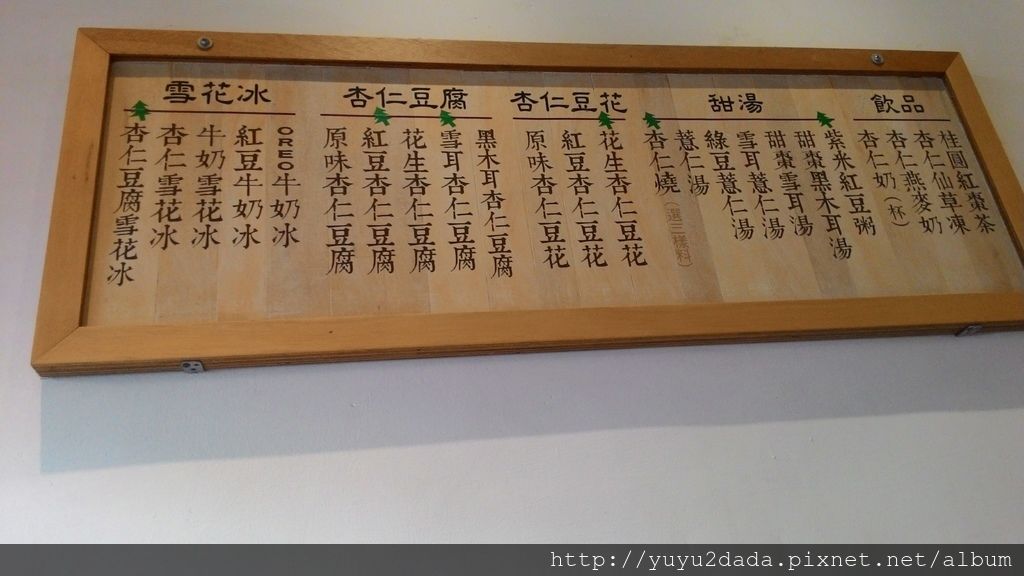 雪花冰
杏仁豆腐雪花冰
杏仁雪花冰
牛奶雪花冰
紅豆牛奶冰
OREO牛奶冰
杏仁豆腐
原味杏仁豆腐
紅豆杏仁豆腐
花生杏仁豆腐
雪耳杏仁豆腐
黑木耳杏仁豆腐
杏仁豆花
原味杏仁豆花
紅豆杏仁豆花
花生杏仁豆花
甜湯
杏仁燒(選三樣料)
薏仁湯
綠豆薏仁湯
雪耳薏仁湯
甜棗雪耳湯
甜棗黑木耳湯
紫米紅豆粥
飲品
杏仁奶(杯)
杏仁燕麥奶
杏仁仙草凍
桂圓紅棗茶
http://yuyu2dada.pixnet.net/album